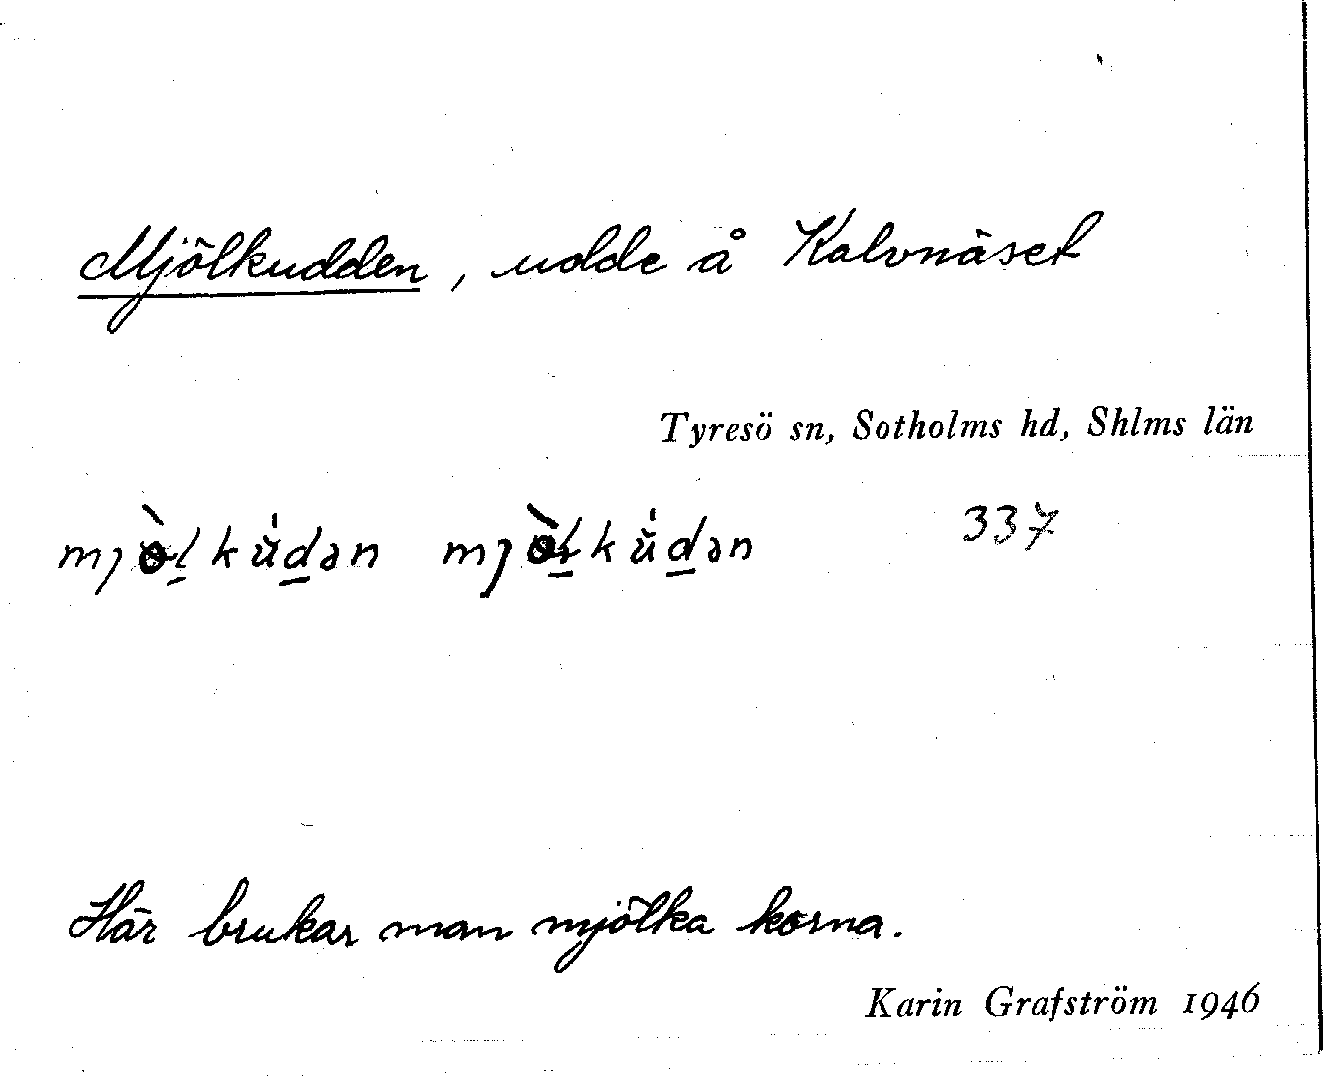 Mjölkudden, udde å Kalvnäset
Tyresö sn, Sotholms hd, Shlms län
337
Här brukar man mjölka korna.
Karin Grafström 1946